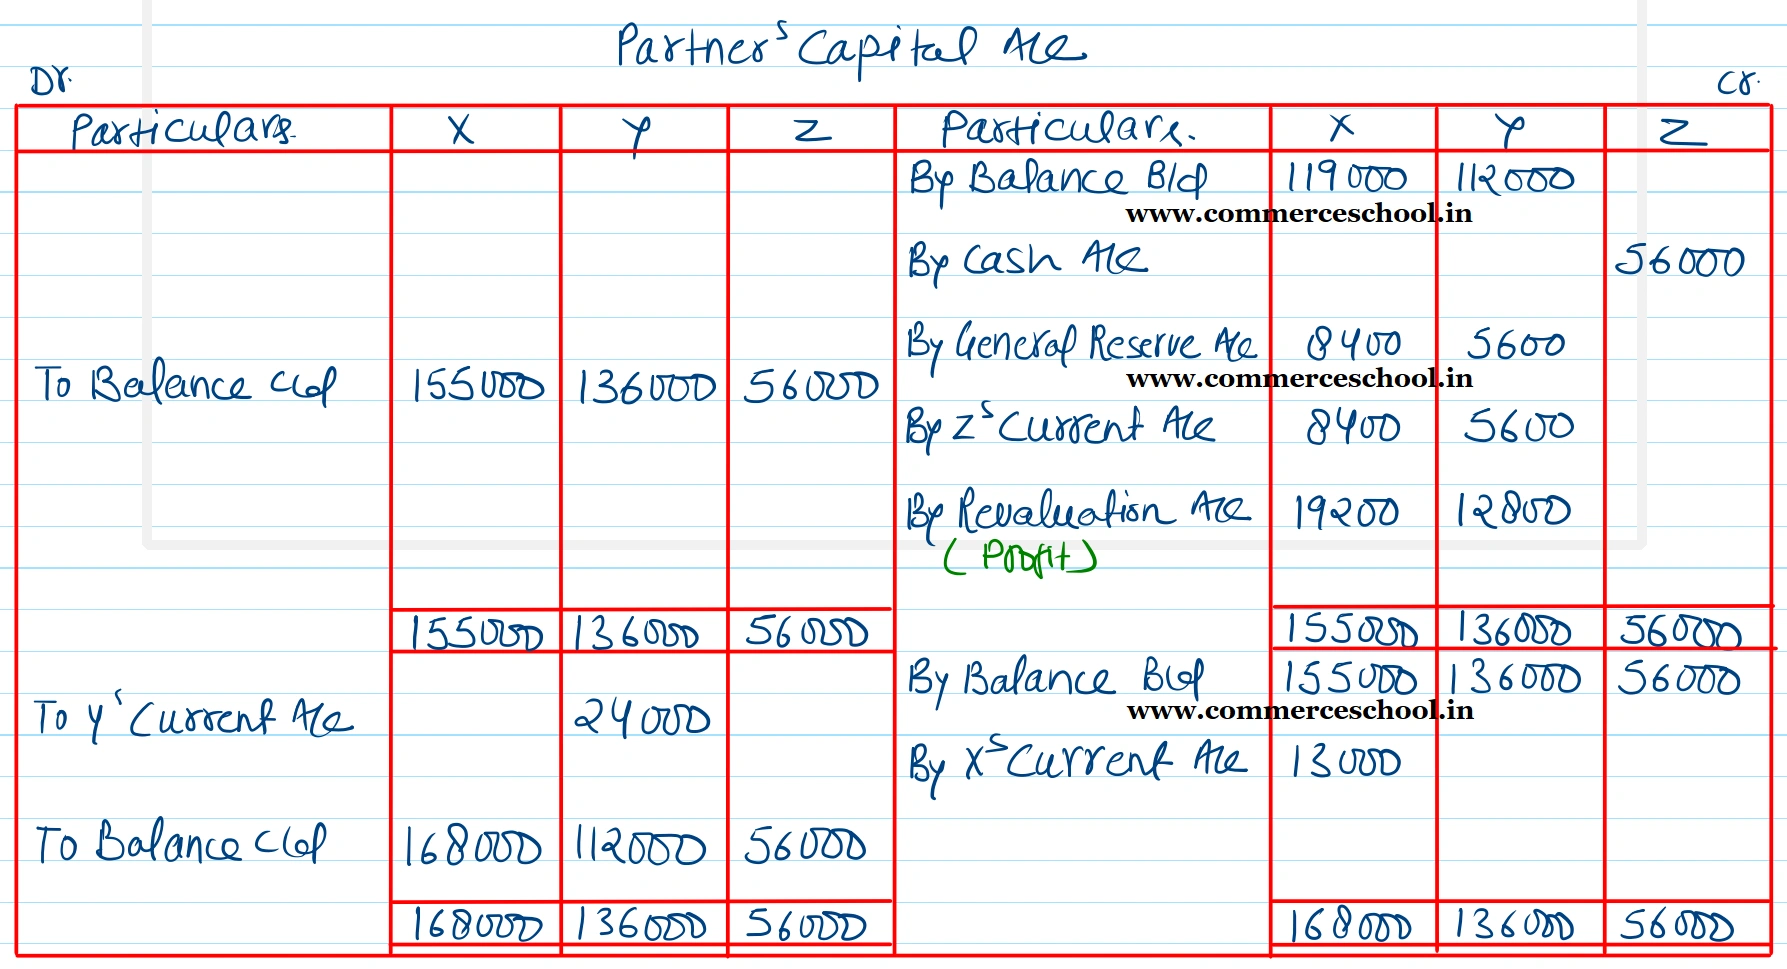 Partner's Capital A/c
Dr. Cr.
Particulars. X Y Z Particulars. X Y Z
By Balance B/d 119000 112000
www.commerceschool.in
By Cash A/c 56000
By General Reserve A/c 8400 5600
www.commerceschool.in
To Balance c/d 155000 136000 56000
By Z's Current A/c 8400 5600
By Revaluation A/c 19200 12800
(Profit)
155000 136000 56000 155000 136000 56000
By Balance B/d 155000 136000 56000
www.commerceschool.in
To Y's Current A/c 24000
By X's Current A/c 13000
To Balance c/d 168000 112000 56000
168000 136000 56000 168000 136000 56000